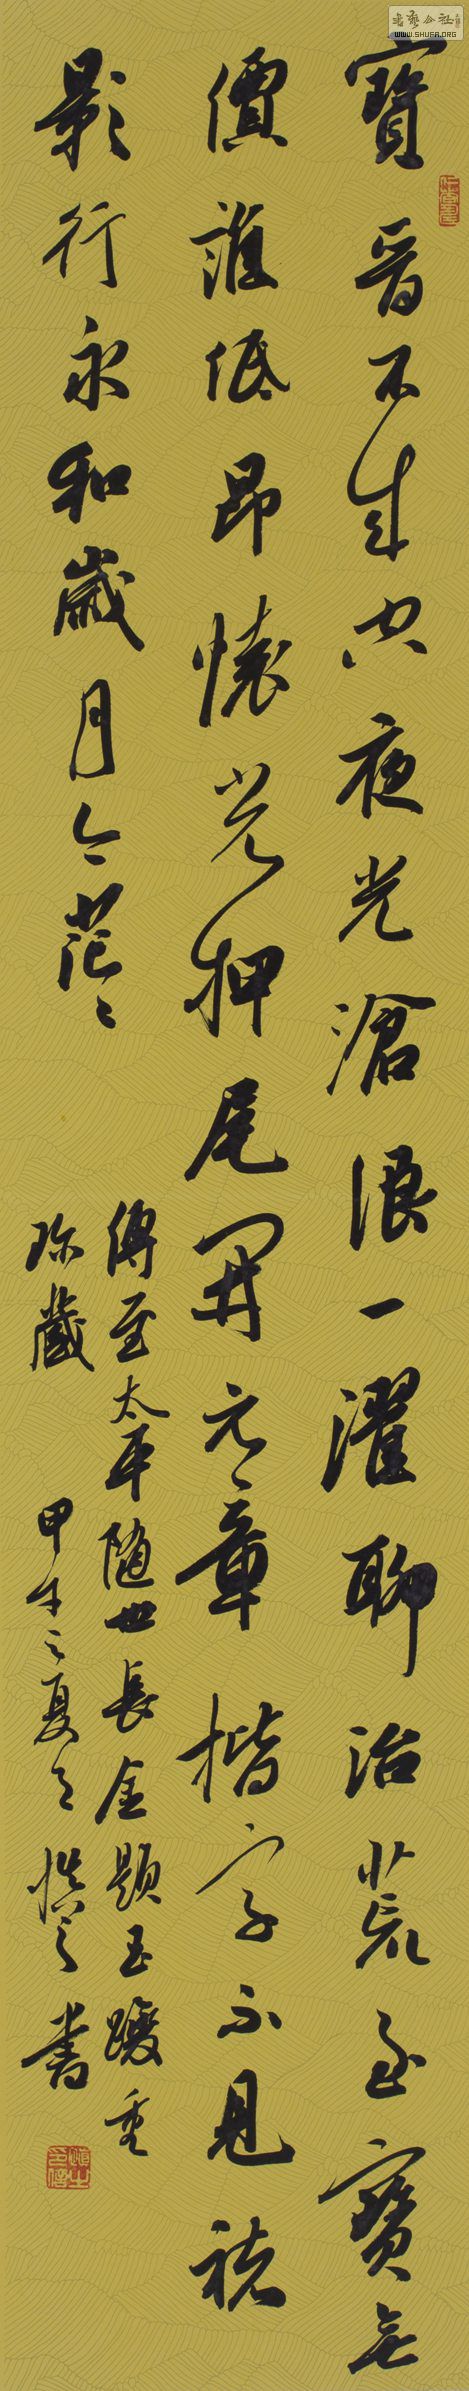 寶晉不成夜光滄浪一濯聊治荒至寶無
價誰低昂懷充押尾開元章楷字不見褚
影行永和歲月今茫〻
傳至太平隨世長金題玉躞重
珍藏 甲午之夏月 慎之書
书艺公社
WWW.SHUFA.ORG